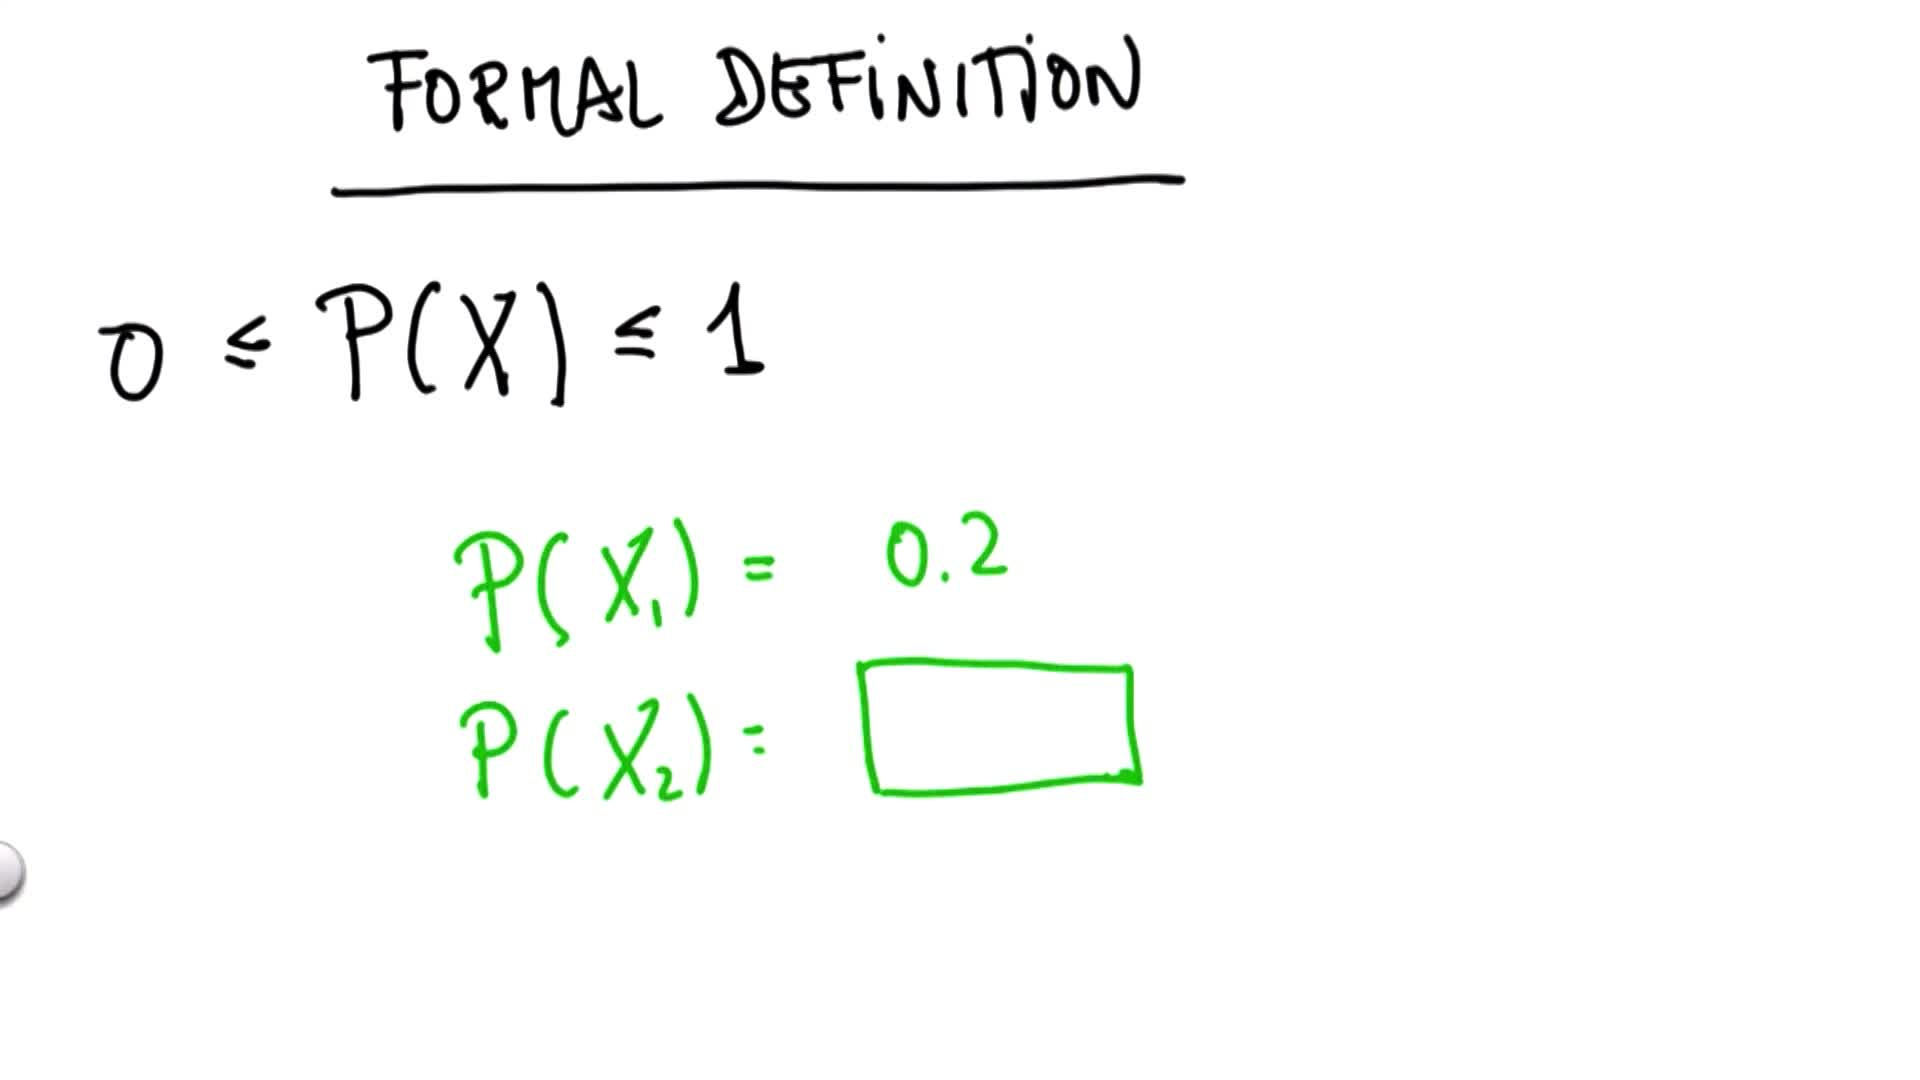 FORMAL DEFINITION
0 ≤ P(X) ≤ 1
P(X₁) = 0.2
P(X₂) =